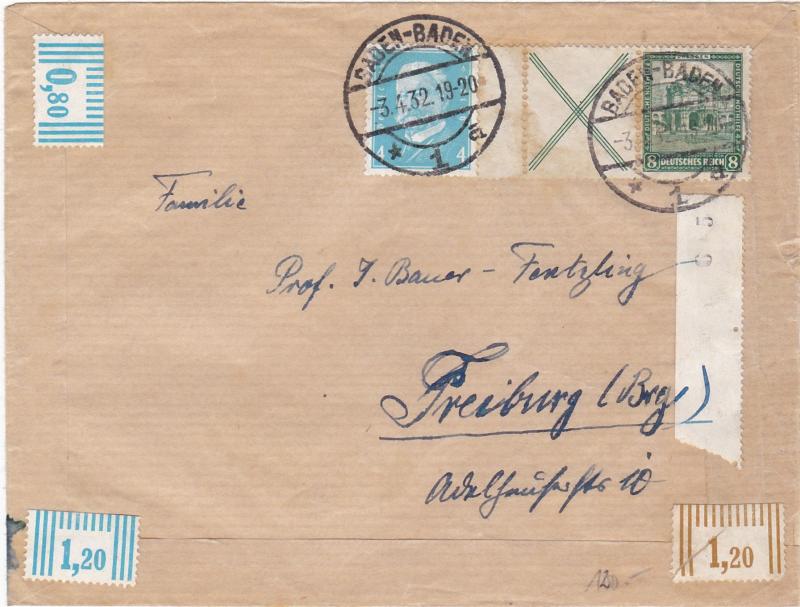 0,80
BADEN-BADEN
-3.4.32.19-20
* 1 a
4 4
DRESDEN
8 DEUTSCHES REICH 8
BADEN-BADEN
-3.
* 1 a
Familie
Prof. J. Bauer-Fentzling
Freiburg (Brg)
Adelhauserstr 10
1,20
1,20
120.-